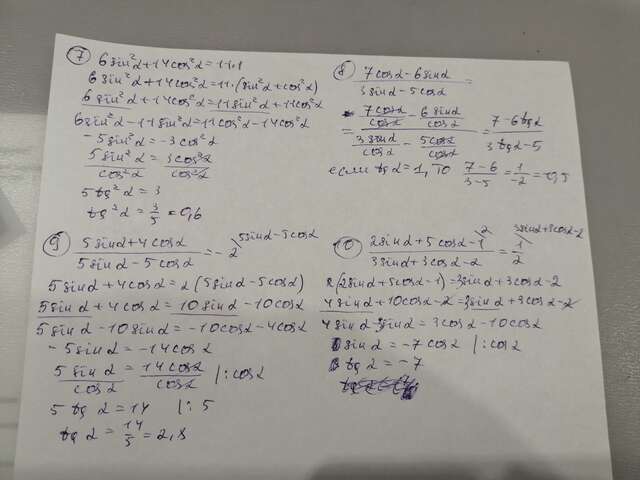 7 6 sin²α + 14cos²α = 11·1
6 sin²α + 14cos²α = 11·(sin²α + cos²α)
6 sin²α + 14cos²α = 11sin²α + 11cos²α
6sin²α - 11sin²α = 11cos²α - 14cos²α
-5sin²α = -3cos²α
5sin²α/cos²α = 3cos²α/cos²α
5 tg²α = 3
tg²α = 3/5 = 0,6
8 (7cosα - 6sinα)/(3sinα - 5cosα) =
= (7cosα/cosα - 6sinα/cosα)/(3sinα/cosα - 5cosα/cosα) = (7 - 6tgα)/(3tgα - 5)
если tgα = 1, то (7-6)/(3-5) = 1/-2 = -0,5
9 (5sinα + 4cosα)/(5sinα - 5cosα) = 2 5sinα - 5cosα
5sinα + 4cosα = 2(5sinα - 5cosα)
5sinα + 4cosα = 10sinα - 10cosα
5sinα - 10sinα = -10cosα - 4cosα
-5sinα = -14cosα
5sinα/cosα = 14cosα/cosα |: cosα
5 tgα = 14 |: 5
tgα = 14/5 = 2,8
10 (2sinα + 5cosα - 1)/(3sinα + 3cosα - 2) = 1/2 2 3sinα + 3cosα - 2
2(2sinα + 5cosα - 1) = 3sinα + 3cosα - 2
4sinα + 10cosα - 2 = 3sinα + 3cosα - 2
4sinα - 3sinα = 3cosα - 10cosα
sinα = -7cosα |: cosα
tgα = -7